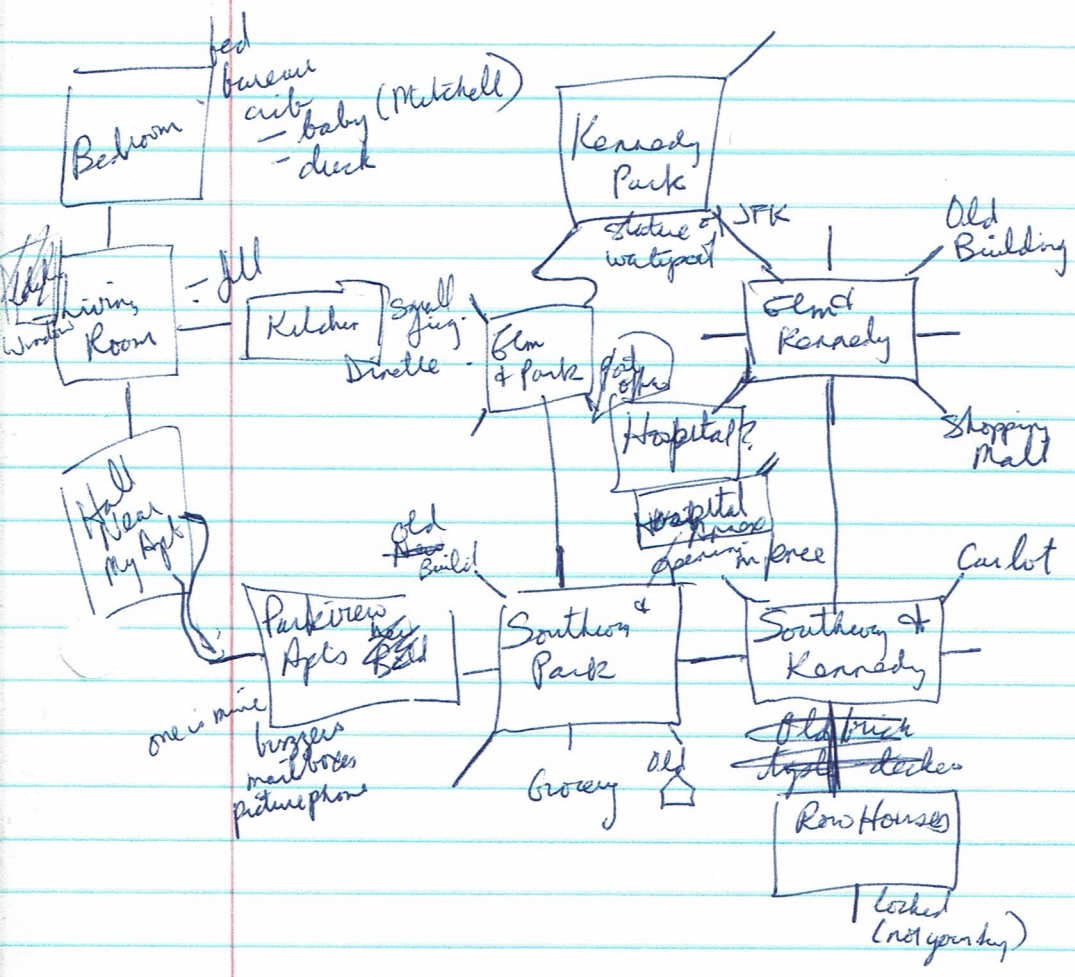 bed
bureau
crib
- baby (Mitchell)
- duck
Bedroom
Kennedy
Park
Statue of JFK
waterport
Old
Building
Living
Room
Window
Kitchen
Small
Dinette
Elm
& Park
Elm &
Kennedy
Hospital?
Shopping
Mall
Hall
Near
My Apt
Hospital
Annex
opening in fence
Old
Build
Car lot
Parkview
Apts
Southway &
Park
Southway &
Kennedy
one is mine
buzzers
mailboxes
picturephone
Grocery
Old
Old brick
decker
Row Houses
Locked
(not your key)